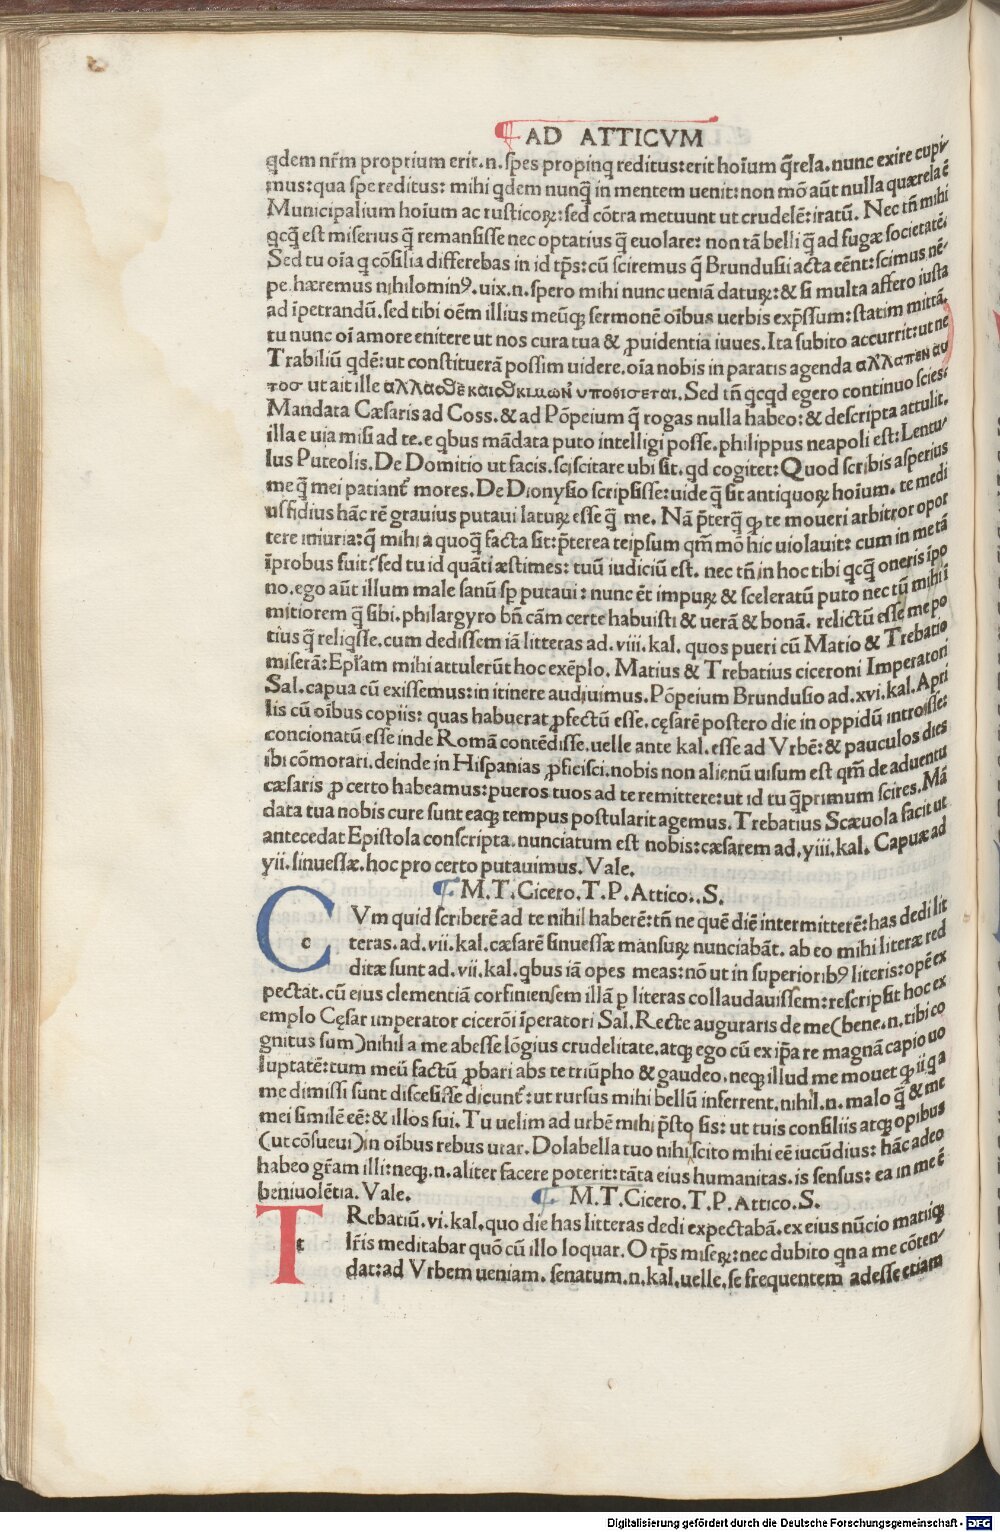 AD ATTICVM
qdem nr̃m proptium erit.n.spes propinq reditus:erit hoīum q̃rela.nunc exire cupi-
mus:qua spe reditus: mihi qdem nunq̃ in mentem uenit:non mõ aũt nulla quærela ẽ
Municipalium hoīum ac rusticoꝝ:sed cõtra metuunt ut crudelẽ:iratũ. Nec tñ mihi
qcq̃ est miserius q̃ remansisse nec optatius q̃ euolare: non tã belli q̃ ad fugæ societatẽ.
Sed tu oīa q cõsilia differebas in id tp̃s:cũ sciremus q̃ Brundusii acta eẽnt:scimus nẽ-
pe hæremus nihilominꝰ.uix.n.spero mihi nunc ueniã datuꝝ:& si multa affero iusta
ad īpetrandũ.sed tibi oẽm illius meũqꝫ sermonẽ oībus uerbis exp̃ssum:statim mittã.
tu nunc oī amore enitere ut nos cura tua & ꝓuidentia iuues.Ita subito accurrit:ut ne
Trabiliũ qdẽ:ut constituerã possim uidere.oīa nobis in paratis agenda αλλαπεν αυ
τοσ ut ait ille αλλαοθε και οθκι μων υποθισεται.Sed tñ qcqd egero continuo scies.
Mandata Cæsaris ad Coss.& ad Põpeium q̃ rogas nulla habeo:& descripta attulit.
illa e uia misi ad te.e qbus mãdata puto intelligi posse.philippus neapoli est:Lentu-
lus Puteolis.De Domitio ut facis.sciscitare ubi sit.qd cogitet:Quod scribis asperius
me q̃ mei patiant̃ mores.De Dionysio scripsisse:uide q̃ sit antiquoꝝ hoīum. te medi
us fidius hãc rẽ grauius putaui latuꝝ esse q̃ me. Nã p̃terq̃ ꝙ te moueri arbitror opor
tere iniuria:q̃ mihi a quoq̃ facta sit:p̃terea teipsum qm̃ mõ hic uiolauit: cum in me tã
īprobus fuit?sed tu id quãti æstimes: tuũ iudiciũ est. nec tñ in hoc tibi qcq̃ oneris īpo
no.ego aũt illum male sanũ sp̃ putaui: nunc ẽt impuꝝ & sceleratũ puto nec tũ mihi ī
mitiorem q̃ sibi.philargyro bñ cãm certe habuisti & uerã & bonã. relictũ esse me po
tius q̃ reliqsse.cum dedissem iã litteras ad.viii.kal. quos pueri cũ Matio & Trebatio
miserã:Epl̃am mihi attulerũt hoc exẽplo. Matius & Trebatius ciceroni Imperatori
Sal.capua cũ exissemus:in itinere audiuimus.Põpeium Brundusio ad.xvi.kal.Apri
lis cũ oībus copiis: quas habuerat ꝓfectũ esse.cęsarẽ postero die in oppidũ introisse:
concionatũ esse inde Romã contẽdisse.uelle ante kal.esse ad Vrbẽ:& pauculos dies
ibi cõmorari.deinde in Hispanias ꝓficisci.nobis non alienũ uisum est qm̃ de aduentu
cæsaris ꝓ certo habeamus:pueros tuos ad te remittere:ut id tu q̃primum scires.Mã
data tua nobis cure sunt eaqꝫ tempus postularit agemus.Trebatius Scæuola facit ut
antecedat Epistola conscripta.nunciatum est nobis:cæsarem ad.yiii.kal. Capuæ ad
yii.sinuessæ.hoc pro certo putauimus.Vale.
M.T.Cicero.T.P.Attico..S.
CVm quid scriberẽ ad te nihil haberẽ:tñ ne quẽ diẽ intermitterẽ:has dedi lit
c teras.ad.vii.kal.cæsarẽ sinuessæ mansuꝝ nunciabãt. ab eo mihi literæ red
ditæ sunt ad.vii.kal.qbus iã opes meas:nõ ut in superioribꝰ literis:opẽ ex
pectat.cũ eius clementiã corfiniensem illã p literas collaudauissem:rescripsit hoc ex
emplo Cęsar imperator cicerõi īperatori Sal.Recte auguraris de me(bene.n.tibi co
gnitus sum)nihil a me abesse lõgius crudelitate.atqꝫ ego cũ ex ip̃a re magnã capio uo
luptatẽ:tum meũ factũ ꝓbari abs te triũpho & gaudeo.neqꝫ illud me mouet ꝙ ii q a
me dimissi sunt discesisse dicunt̃:ut rursus mihi bellũ inferrent.nihil.n.malo q̃ & me
mei similẽ eẽ:& illos sui.Tu uelim ad urbẽ mihi p̃sto sis:ut tuis consiliis atqꝫ opibus
(ut cõsueui)in oībus rebus utar.Dolabella tuo nihi scito mihi eẽ iucũdius: hãc adeo
habeo gr̃am illi:neqꝫ.n.aliter facere poterit:tãta eius humanitas.is sensus: ea in me ẽ
beniuolẽtia.Vale. M.T.Cicero.T.P.Attico.S.
TRebatiũ.vi.kal.quo die has litteras dedi expectabã.ex eius nũcio matiiqꝫ
t lr̃is meditabar quõ cũ illo loquar.O tp̃s miseꝝ:nec dubito qn a me cõten-
dat:ad Vrbem ueniam.senatum.n.kal.uelle.se frequentem adesse etiam
Digitalisierung gefördert durch die Deutsche Forschungsgemeinschaft - DFG